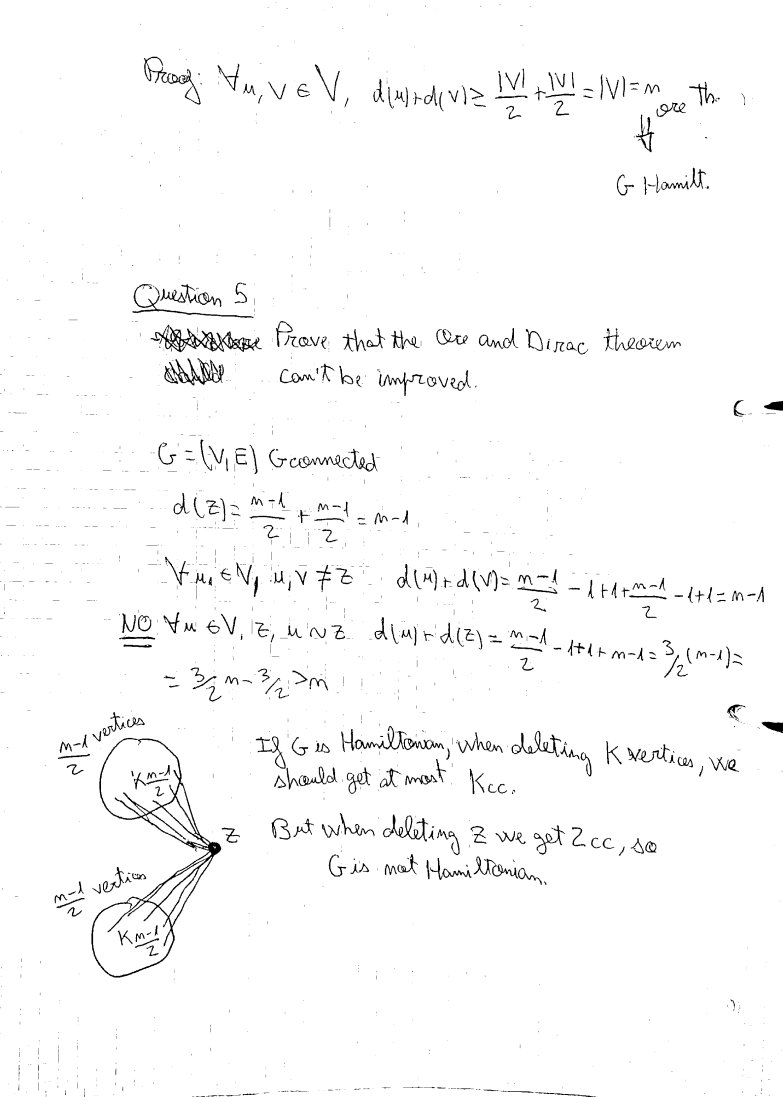 Proof: ∀u, v ∈ V, d(u)+d(v) ≥ |V|/2 + |V|/2 = |V| = n ore Th.
⇓
G Hamilt.
Question 5
Prove that the Ore and Dirac theorem
can't be improved.
G = (V, E) G connected
d(z) = n-1/2 + n-1/2 = n-1
∀u, ∈ V, u, v ≠ z d(u) + d(v) = n-1/2 - 1+1 + n-1/2 - 1+1 = n-1
NO ∀u ∈ V, z, u ~ z d(u) + d(z) = n-1/2 - 1+1 + n-1 = 3/2 (n-1) =
= 3/2 n - 3/2 > n
n-1/2 vertices
K n-1/2
If G is Hamiltonian, when deleting K vertices, we
should get at most K cc.
z
But when deleting z we get 2 cc, so
G is not Hamiltonian.
n-1/2 vertices
K n-1/2